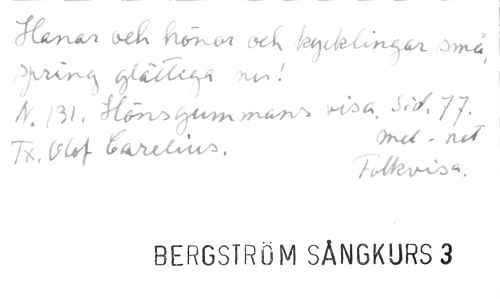 Hanar och hönor och kycklingar små,
spring glättiga nu!
N. 131. Hönsgummans visa. Sid. 77.
Tx. Olof Carelius. mel-not
Folkvisa.
BERGSTRÖM SÅNGKURS 3